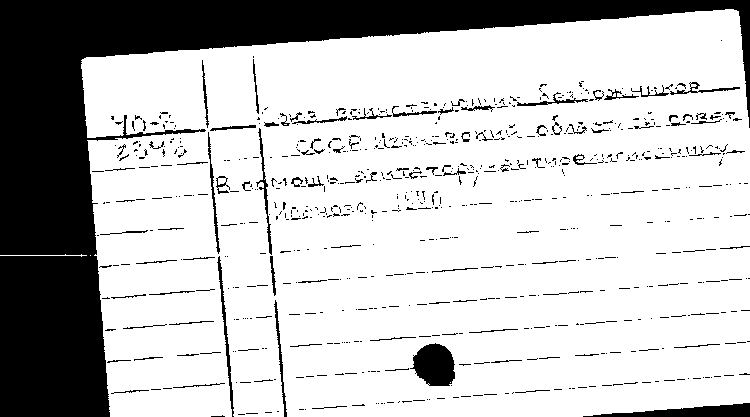 40-8
2343
Союз воинствующих безбожников
СССР. Ивановский областной совет.
В помощь агитатору-антирелигиознику.
Иваново, 1940.